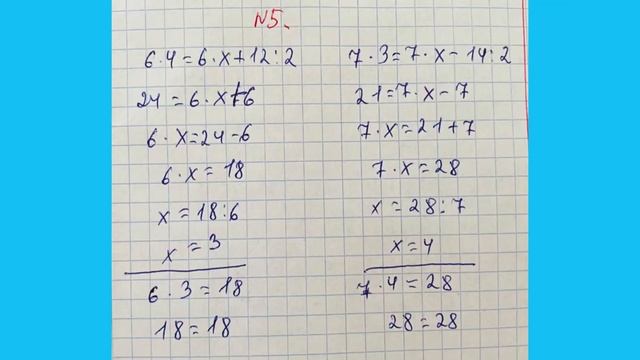 N5.
6·4=6·x+12:2
24=6·x+6
6·x=24-6
6·x=18
x=18:6
x=3
6·3=18
18=18
7·3=7·x-14:2
21=7·x-7
7·x=21+7
7·x=28
x=28:7
x=4
7·4=28
28=28